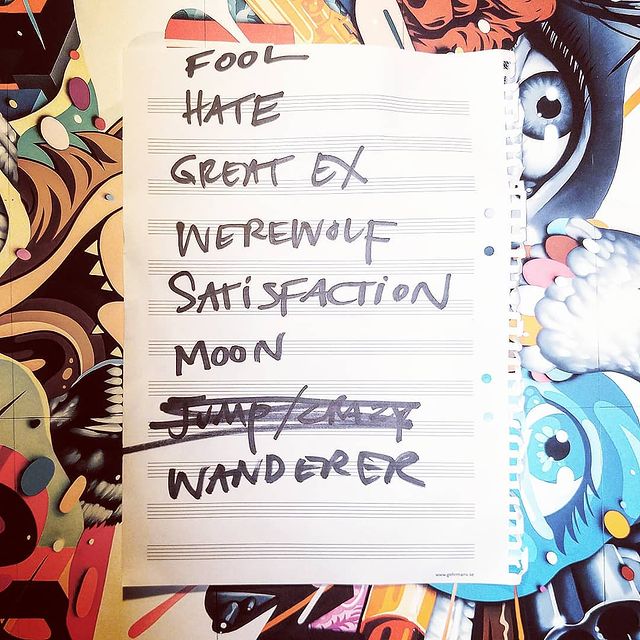 FOOL
HATE
GREAT EX
WEREWOLF
SATiSFACTiON
MOON
JUMP/CRAZY
WANDERER
www.gehrmans.se